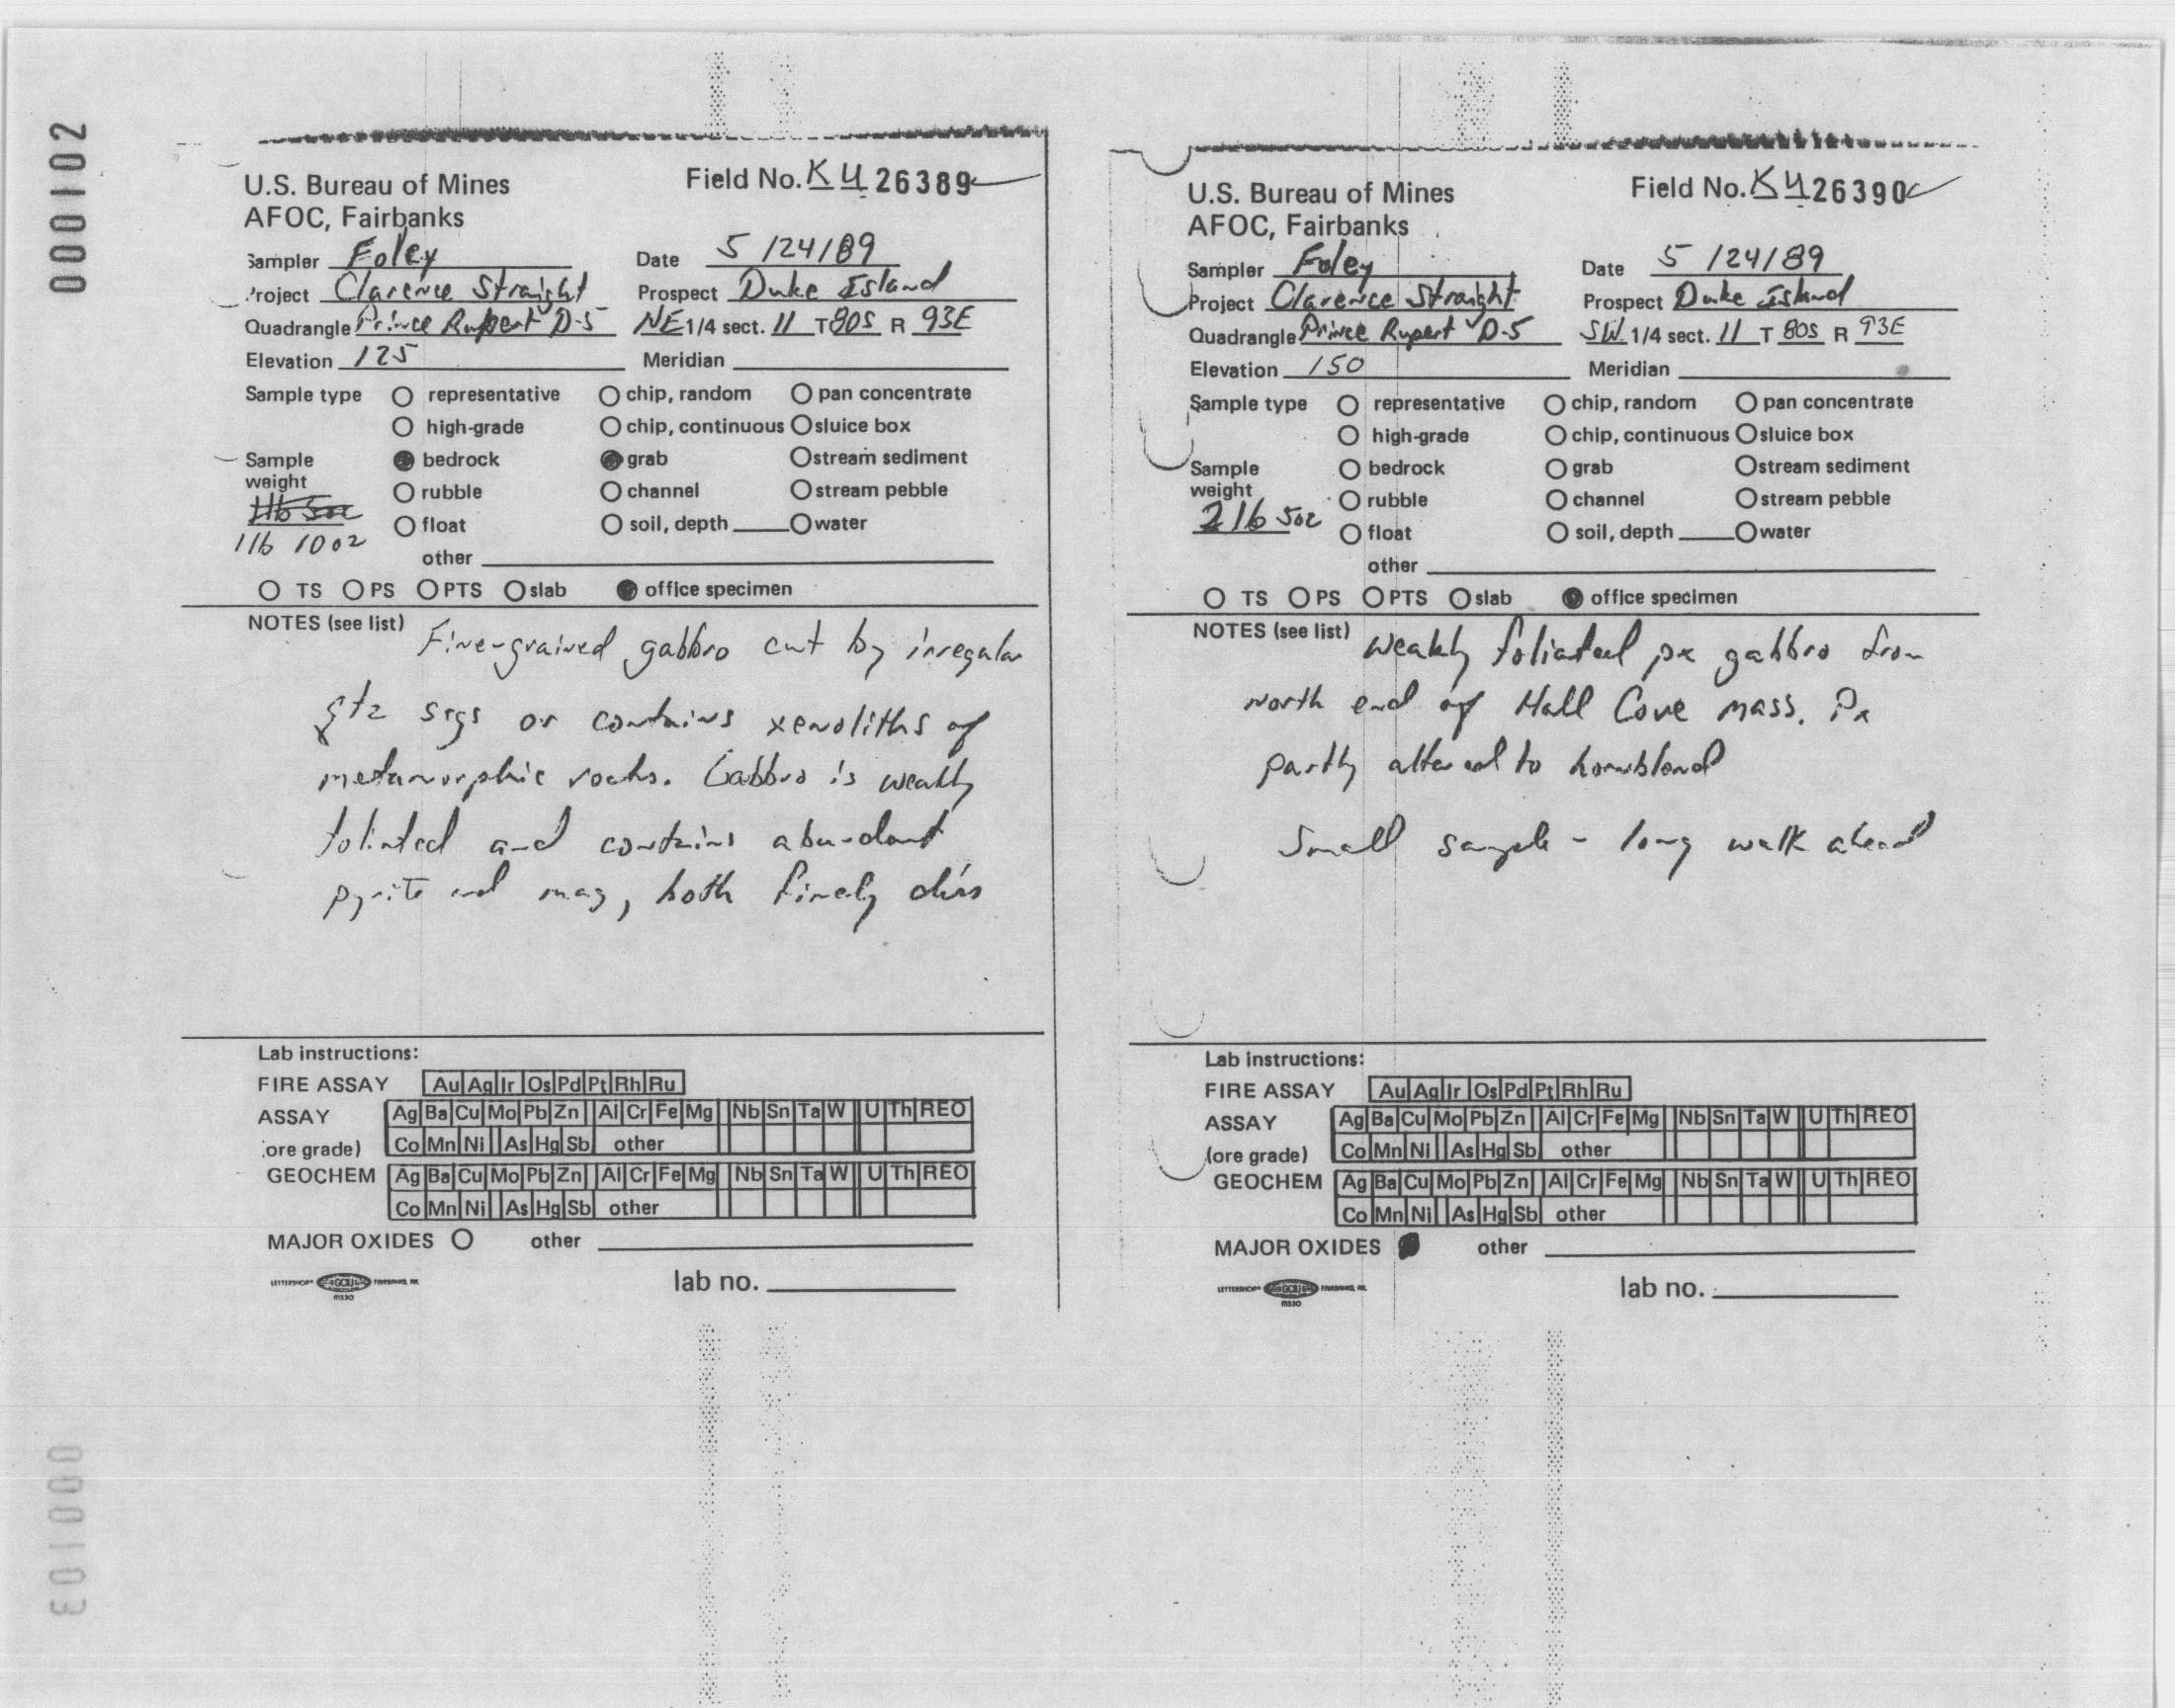 000102
U.S. Bureau of Mines Field No. KU 26389
AFOC, Fairbanks
Sampler Foley Date 5/24/89
Project Clarence Straight Prospect Duke Island
Quadrangle Prince Rupert D-5 NE 1/4 sect. 11 T 80S R 93E
Elevation 125 Meridian
Sample type representative chip, random pan concentrate
high-grade chip, continuous sluice box
Sample bedrock grab stream sediment
weight rubble channel stream pebble
1lb 5oz float soil, depth water
1lb 10oz
other
TS PS PTS slab office specimen
NOTES (see list) Fine-grained gabbro cut by irregular
qtz segs or contains xenoliths of
metamorphic rocks. Gabbro is weakly
foliated and contains abundant
pyrite and mag, both finely diss
Lab instructions:
FIRE ASSAY Au Ag Ir Os Pd Pt Rh Ru
ASSAY Ag Ba Cu Mo Pb Zn Al Cr Fe Mg Nb Sn Ta W U Th REO
(ore grade) Co Mn Ni As Hg Sb other
GEOCHEM Ag Ba Cu Mo Pb Zn Al Cr Fe Mg Nb Sn Ta W U Th REO
Co Mn Ni As Hg Sb other
MAJOR OXIDES other
lab no.
U.S. Bureau of Mines Field No. KU 26390
AFOC, Fairbanks
Sampler Foley Date 5/24/89
Project Clarence Straight Prospect Duke Island
Quadrangle Prince Rupert D-5 SW 1/4 sect. 11 T 80S R 93E
Elevation 150 Meridian
Sample type representative chip, random pan concentrate
high-grade chip, continuous sluice box
Sample bedrock grab stream sediment
weight rubble channel stream pebble
2lb 5oz float soil, depth water
other
TS PS PTS slab office specimen
NOTES (see list) Weakly foliated px gabbro from
north end of Hall Cove mass. Px
partly altered to hornblend
Small sample - long walk ahead
Lab instructions:
FIRE ASSAY Au Ag Ir Os Pd Pt Rh Ru
ASSAY Ag Ba Cu Mo Pb Zn Al Cr Fe Mg Nb Sn Ta W U Th REO
(ore grade) Co Mn Ni As Hg Sb other
GEOCHEM Ag Ba Cu Mo Pb Zn Al Cr Fe Mg Nb Sn Ta W U Th REO
Co Mn Ni As Hg Sb other
MAJOR OXIDES other
lab no.
000103